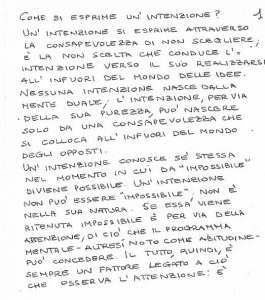 COME SI ESPRIME UN'INTENZIONE? 1
UN'INTENZIONE SI ESPRIME ATTRAVERSO
LA CONSAPEVOLEZZA DI NON SCEGLIERE;
È LA NON SCELTA CHE CONDUCE L'=
INTENZIONE VERSO IL SUO REALIZZARSI
ALL'INFUORI DEL MONDO DELLE IDEE.
NESSUNA INTENZIONE NASCE DALLA
MENTE DUALE; L'INTENZIONE, PER VIA
DELLA SUA PUREZZA, PUO' NASCERE
SOLO DA UNA CONSAPEVOLEZZA CHE
SI COLLOCA ALL'INFUORI DEL MONDO
DEGLI OPPOSTI.
UN'INTENZIONE CONOSCE SE' STESSA
NEL MOMENTO IN CUI DA "IMPOSSIBILE"
DIVIENE POSSIBILE. UN'INTENZIONE
NON PUO' ESSERE "IMPOSSIBILE", NON È
NELLA SUA NATURA. SE ESSA VIENE
RITENUTA IMPOSSIBILE È PER VIA DELLA
ATTENZIONE, DI CIO' CHE IL PROGRAMMA
MENTALE - ALTRESÌ NOTO COME ABITUDINE -
PUO' CONCEDERE. IL TUTTO, QUINDI, È
SEMPRE UN FATTORE LEGATO A CIO'
CHE OSSERVA L'ATTENZIONE: È